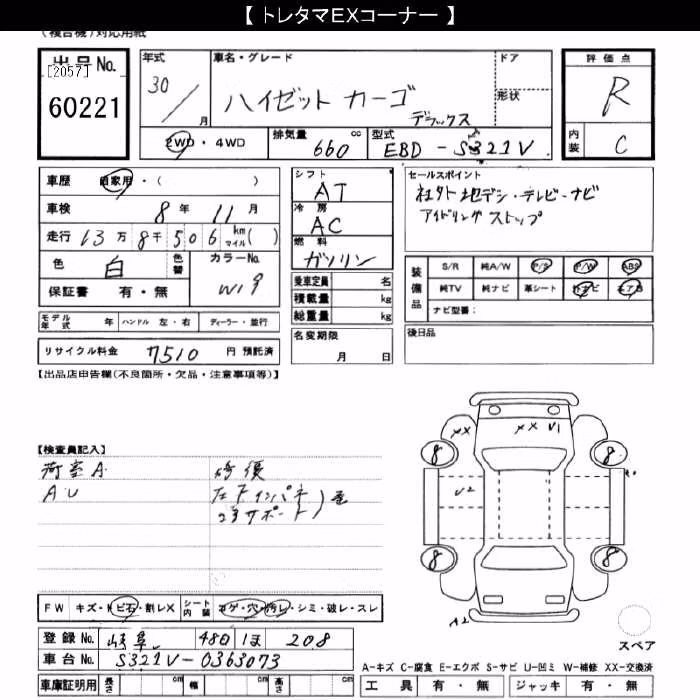 【 トレタマEXコーナー 】
(複合機)対応用紙
出品No.
[2057]
60221
年式 30 / 月
車名・グレード
ハイゼット カーゴ
デラックス
ドア
形状
評価点
R
内装 C
2WD・4WD
排気量 660 cc
型式 EBD-S321V
車歴 自家用・( )
車検 8年 11月
走行 13万 8千 506 km マイル ( )
色 白 色替
カラーNo. W19
保証書 有・無
シフト AT
冷房 AC
燃料 ガソリン
乗車定員 名
積載量 kg
総重量 kg
セールスポイント
社外 地デジ・テレビ・ナビ
アイドリング ストップ
装備品
S/R 純A/W P/S P/W ABS
純TV 純ナビ 革シート カナビ エアB
ナビ型番:
モデル年式 年 ハンドル 左・右 ディーラー・並行
名変期限 月 日
後日品
リサイクル料金 7510 円 預託済
【出品店申告欄(不良箇所・欠品・注意事項等)】
【検査員記入】
荷室A 修復
AU 左下インパネ
コアサポート
XX XX U1
8 8
U2
8 8
A2
FW キズ・ト ビ石・割レX シート内装 コゲ・穴・汚レ・シミ・破レ・スレ
登録No. 岐阜 480 ほ 208
車台No. S321V-0363073
スペア
A-キズ C-腐食 E-エクボ S-サビ U-凹ミ W-補修 XX-交換済
車庫証明用 長さ cm 幅 cm 高さ cm
工具 有・無 ジャッキ 有・無